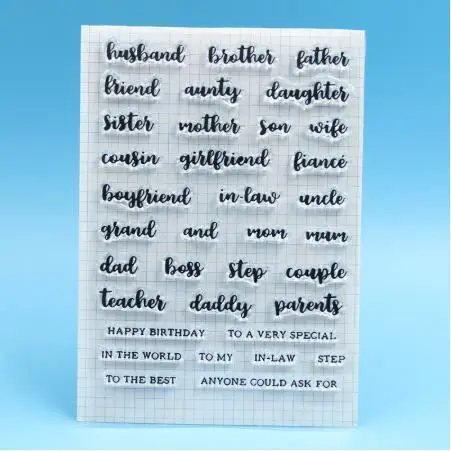 husband brother father
friend aunty daughter
sister mother son wife
cousin girlfriend fiancé
boyfriend in-law uncle
grand and mom mum
dad boss step couple
teacher daddy parents
HAPPY BIRTHDAY TO A VERY SPECIAL
IN THE WORLD TO MY IN-LAW STEP
TO THE BEST ANYONE COULD ASK FOR